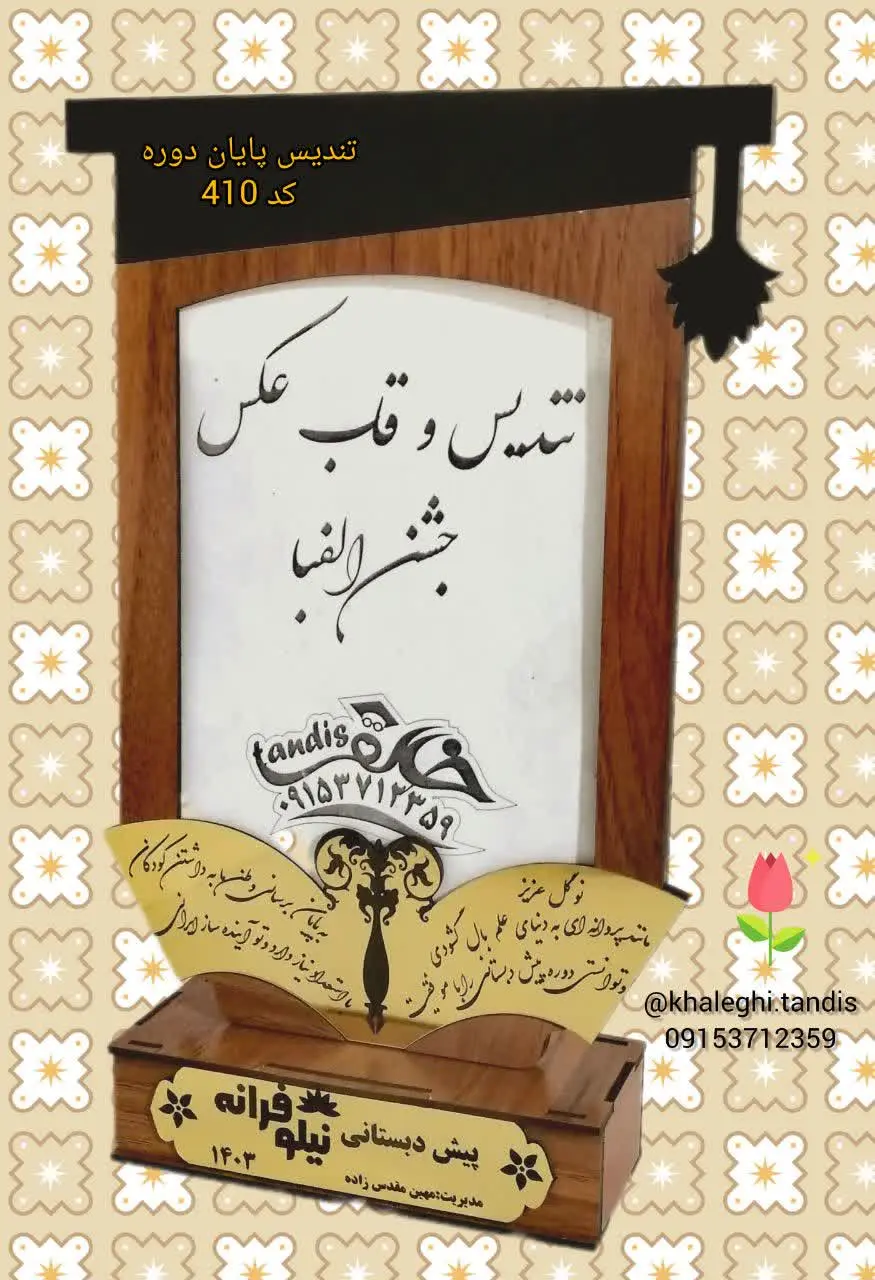 تندیس پایان دوره
کد 410
تندیس و قاب عکس
جشن الفبا
tandis خالقی
۰۹۱۵۳۷۱۲۳۵۹
نو گل عزیز
مانند پروانه ای به دنیای علم بال گشودی
و توانستی دوره پیش دبستانی را با موفقیت
به پایان برسانی وطن ما به داشتن کودکان
با استعداد نیاز دارد و تو آینده ساز ایرانی
@khaleghi.tandis
09153712359
پیش دبستانی
نیلوفرانه
۱۴۰۳
مدیریت:مهین مقدس زاده